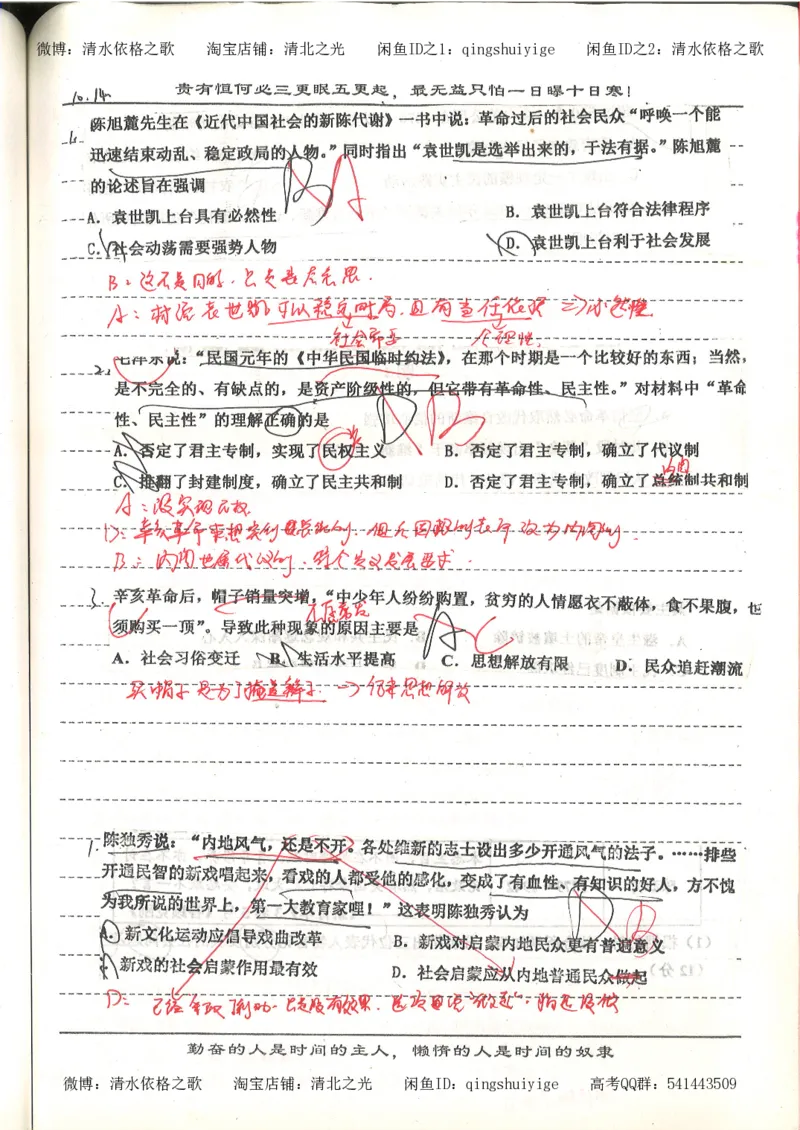 微博：清水依格之歌 淘宝店铺：清北之光 闲鱼ID之1：qingshuiyige 闲鱼ID之2：清水依格之歌
贵有恒何必三更眠五更起，最无益只怕一日曝十日寒！
10.14
陈旭麓先生在《近代中国社会的新陈代谢》一书中说：革命过后的社会民众“呼唤一个能
迅速结束动乱、稳定政局的人物。”同时指出“袁世凯是选举出来的，于法有据。”陈旭麓
的论述旨在强调
BA
A. 袁世凯上台具有必然性 B. 袁世凯上台符合法律程序
C. 社会动荡需要强势人物 D. 袁世凯上台利于社会发展
B：这不是目的，只是表层意思.
A：材流袁世凯可以稳定时局.且有当任依据 ⇒必然性.
社会需要 合理性.
2. 说：“民国元年的《中华民国临时约法》，在那个时期是一个比较好的东西；当然，
是不完全的、有缺点的，是资产阶级性的，但它带有革命性、民主性。”对材料中“革命
性、民主性”的理解正确的是
DB
A. 否定了君主专制，实现了民权主义 B. 否定了君主专制，确立了代议制
C. 推翻了封建制度，确立了民主共和制 D. 否定了君主专制，确立了总统制共和制
内阁
A：没实现民权.
D：
B：内阁也属代议制.
3. 辛亥革命后，帽子销量突增，“中少年人纷纷购置，贫穷的人情愿衣不蔽体，食不果腹，也
须购买一顶”。导致此种现象的原因主要是
A C
A. 社会习俗变迁 B. 生活水平提高 C. 思想解放有限 D. 民众追赶潮流
买帽子是为了掩盖辫子 ⇒ 思想解放
1. 陈独秀说：“内地风气，还是不开。各处维新的志士设出多少开通风气的法子。……排些
开通民智的新戏唱起来，看戏的人都受他的感化，变成了有血性、有知识的好人，方不愧
为我所说的世界上，第一大教育家哩！”这表明陈独秀认为
D B
A. 新文化运动应倡导戏曲改革 B. 新戏对启蒙内地民众更有普遍意义
C. 新戏的社会启蒙作用最有效 D. 社会启蒙应从内地普通民众做起
D：已经
勤奋的人是时间的主人，懒惰的人是时间的奴隶
微博：清水依格之歌 淘宝店铺：清北之光 闲鱼ID：qingshuiyige 高考QQ群：541443509